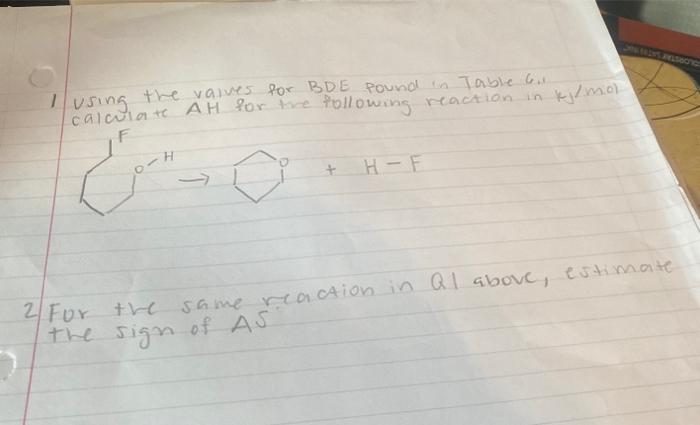 1 Using the values for BDE found in Table 6.1
calculate ΔH for the following reaction in kj/mol
F
O-H
→ O + H-F
2 For the same reaction in Q1 above, estimate
the sign of ΔS